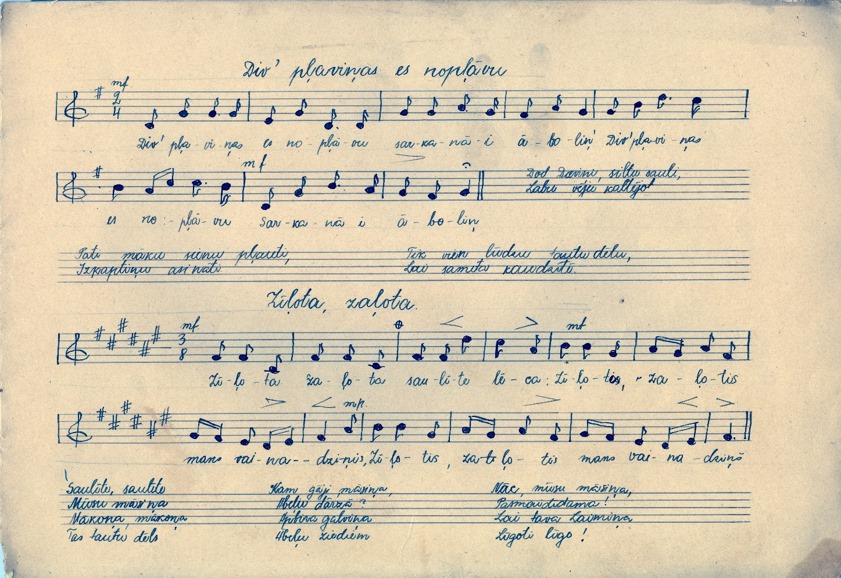 Div' pļaviņas es nopļāvu
mf
2
4
Div' pļa-vi-ņas es no-pļā-vu sar-ka-nā-i ā-bo-liņ' Div' pļa-vi-ņas
mf
es no-pļā-vu Sar-ka-nā i ā-bo-liņ
Dod Dieviņ, siltu sauli,
Labu vēju kaltējot
Pati māku sienu pļauti,
Izkaptiņu asināti
Tik vien lūdzu tautu dēlu,
Lai sametu kaudzīti.
Zīļota, zaļota.
mf
3
8
Zī-ļo-ta ža-ļo-ta sau-lī-te lē-ca: Zī-ļo-tis, za-ļo-tis
mf
mp
mans vai-na--dziņis, Zī-ļo-tis, za-ļo-tis mans vai-na-dziņš
Saulīte, saulīte
Mūsu māsiņa
Mākoņa mākoņa
Tas tautu dēls
Kam gāji māsiņa,
Ābeļu dārzā?
galviņa
Ābeļu ziediem
Nāc, mūsu māsiņa,
Lai tava Laimiņa
Līgoti līgo!